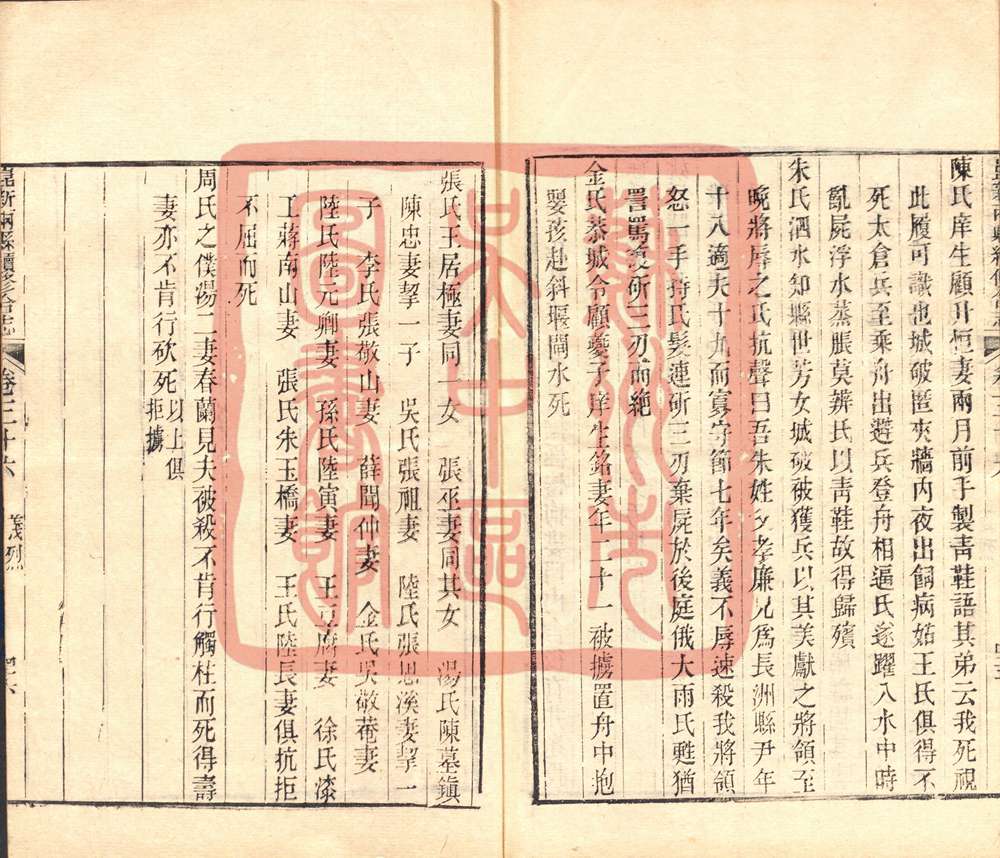 陳氏庠生顧升恒妻兩月前手製靑鞋語其弟云我死視
此履可識也城破匿夾牆內夜出飼病姑王氏俱得不
死太倉兵至乘舟出避兵登舟相逼氏遂躍入水中時
亂屍浮水蒸脹莫辨氏以靑鞋故得歸殯
朱氏泗水知縣世芳女城破被獲兵以其美獻之將領至
晚將辱之氏抗聲曰吾朱姓父孝廉兄爲長洲縣尹年
十八適夫十九而寡守節七年矣義不辱速殺我將領
怒一手持氏髮連斫三刃棄屍於後庭俄大雨氏甦猶
詈罵復斫三刃而絶
金氏恭城令顧夔子庠生銘妻年二十一被擄置舟中抱
嬰孩赴斜堰閘水死
張氏王居極妻同一女 張巫妻同其女 湯氏陳墓鎭
陳忠妻挈一子 吳氏張祖妻 陸氏張思溪妻挈一
子 李氏張敬山妻 薛聞仲妻 金氏吳敬菴妻
陸氏陸元卿妻 孫氏陸寅妻 王豆腐妻 徐氏漆
工蔣南山妻 張氏朱玉橋妻 王氏陸長妻俱抗拒
不屈而死
周氏之僕湯二妻春蘭見夫被殺不肯行觸柱而死得壽
妻亦不肯行砍死以上俱拒擄
崑新兩縣續修合志 卷三十六 義烈